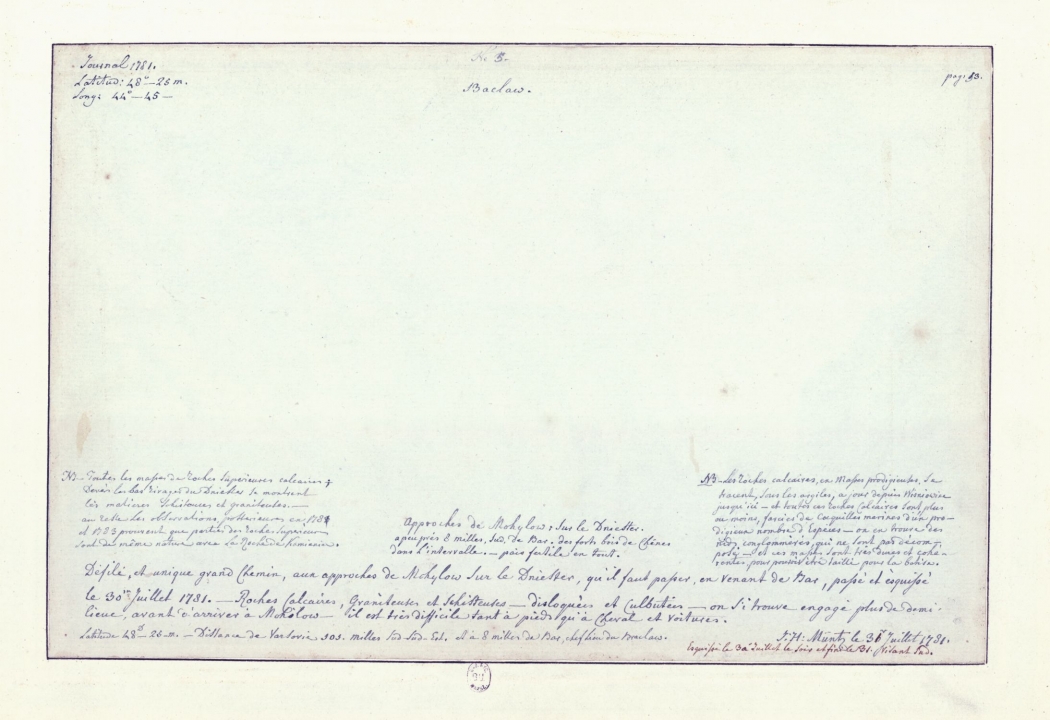 Journal 1781.
Latitud: 48°-26 m.
Long: 44°-45-
No 5.
Baclaw.
pag: 13.
NB- Toutes les masses de roches supérieures calcaires
Dans les bas rivages du Dniester se montrent
les matieres Schiteuses et graniteuses. —
au reste les observations, postérieures en 1781
et 1783 prouvent que partie des roches supérieures
sont de même nature avec la Roche de Kaminiec.
Approches de Mohylow, sur le Dniester.
apeuprès 8 milles, Sud, de Bar. des forts bois de Chênes
dans l'intervalle. — païs fertile en tout.
NB- Les roches calcaires, en Masses prodigieuses, se
trouvent, sous les argiles, a jour depuis
jusqu'ici — et toutes ces roches calcaires sont plus
ou moins, farcies de Coquilles marines d'un pro-
digieux nombre d'Especes — on en trouve des
conglomerés, qui ne sont pas décom-
posé — et ces masses sont très dures et cohé-
rentes pour pouvoir être taillé pour la batisse.
Défilé, et unique grand Chemin, aux approches de Mohylow sur le Dniester, qu'il faut passer, en venant de Bar, passé et esquissé
le 30 Juillet 1781. — Roches Calcaires, Graniteuses et Schitteuses — disloquées et Culbutées — on s'i trouve engagé plus de demi-
lieue, avant d'arriver à Mohilow — il est très difficile tant à pieds qu'à Cheval et voitures.
Latitude 48d-26-m. — Distance de Varsovie 103. milles Sud-Sud-Est. Il a 8 milles de Bar, du Braclaw.
J. H: Müntz le 31 Juillet 1781.
Esquissé le 30 Juillet le soir et fini le 31. Visant Sud.